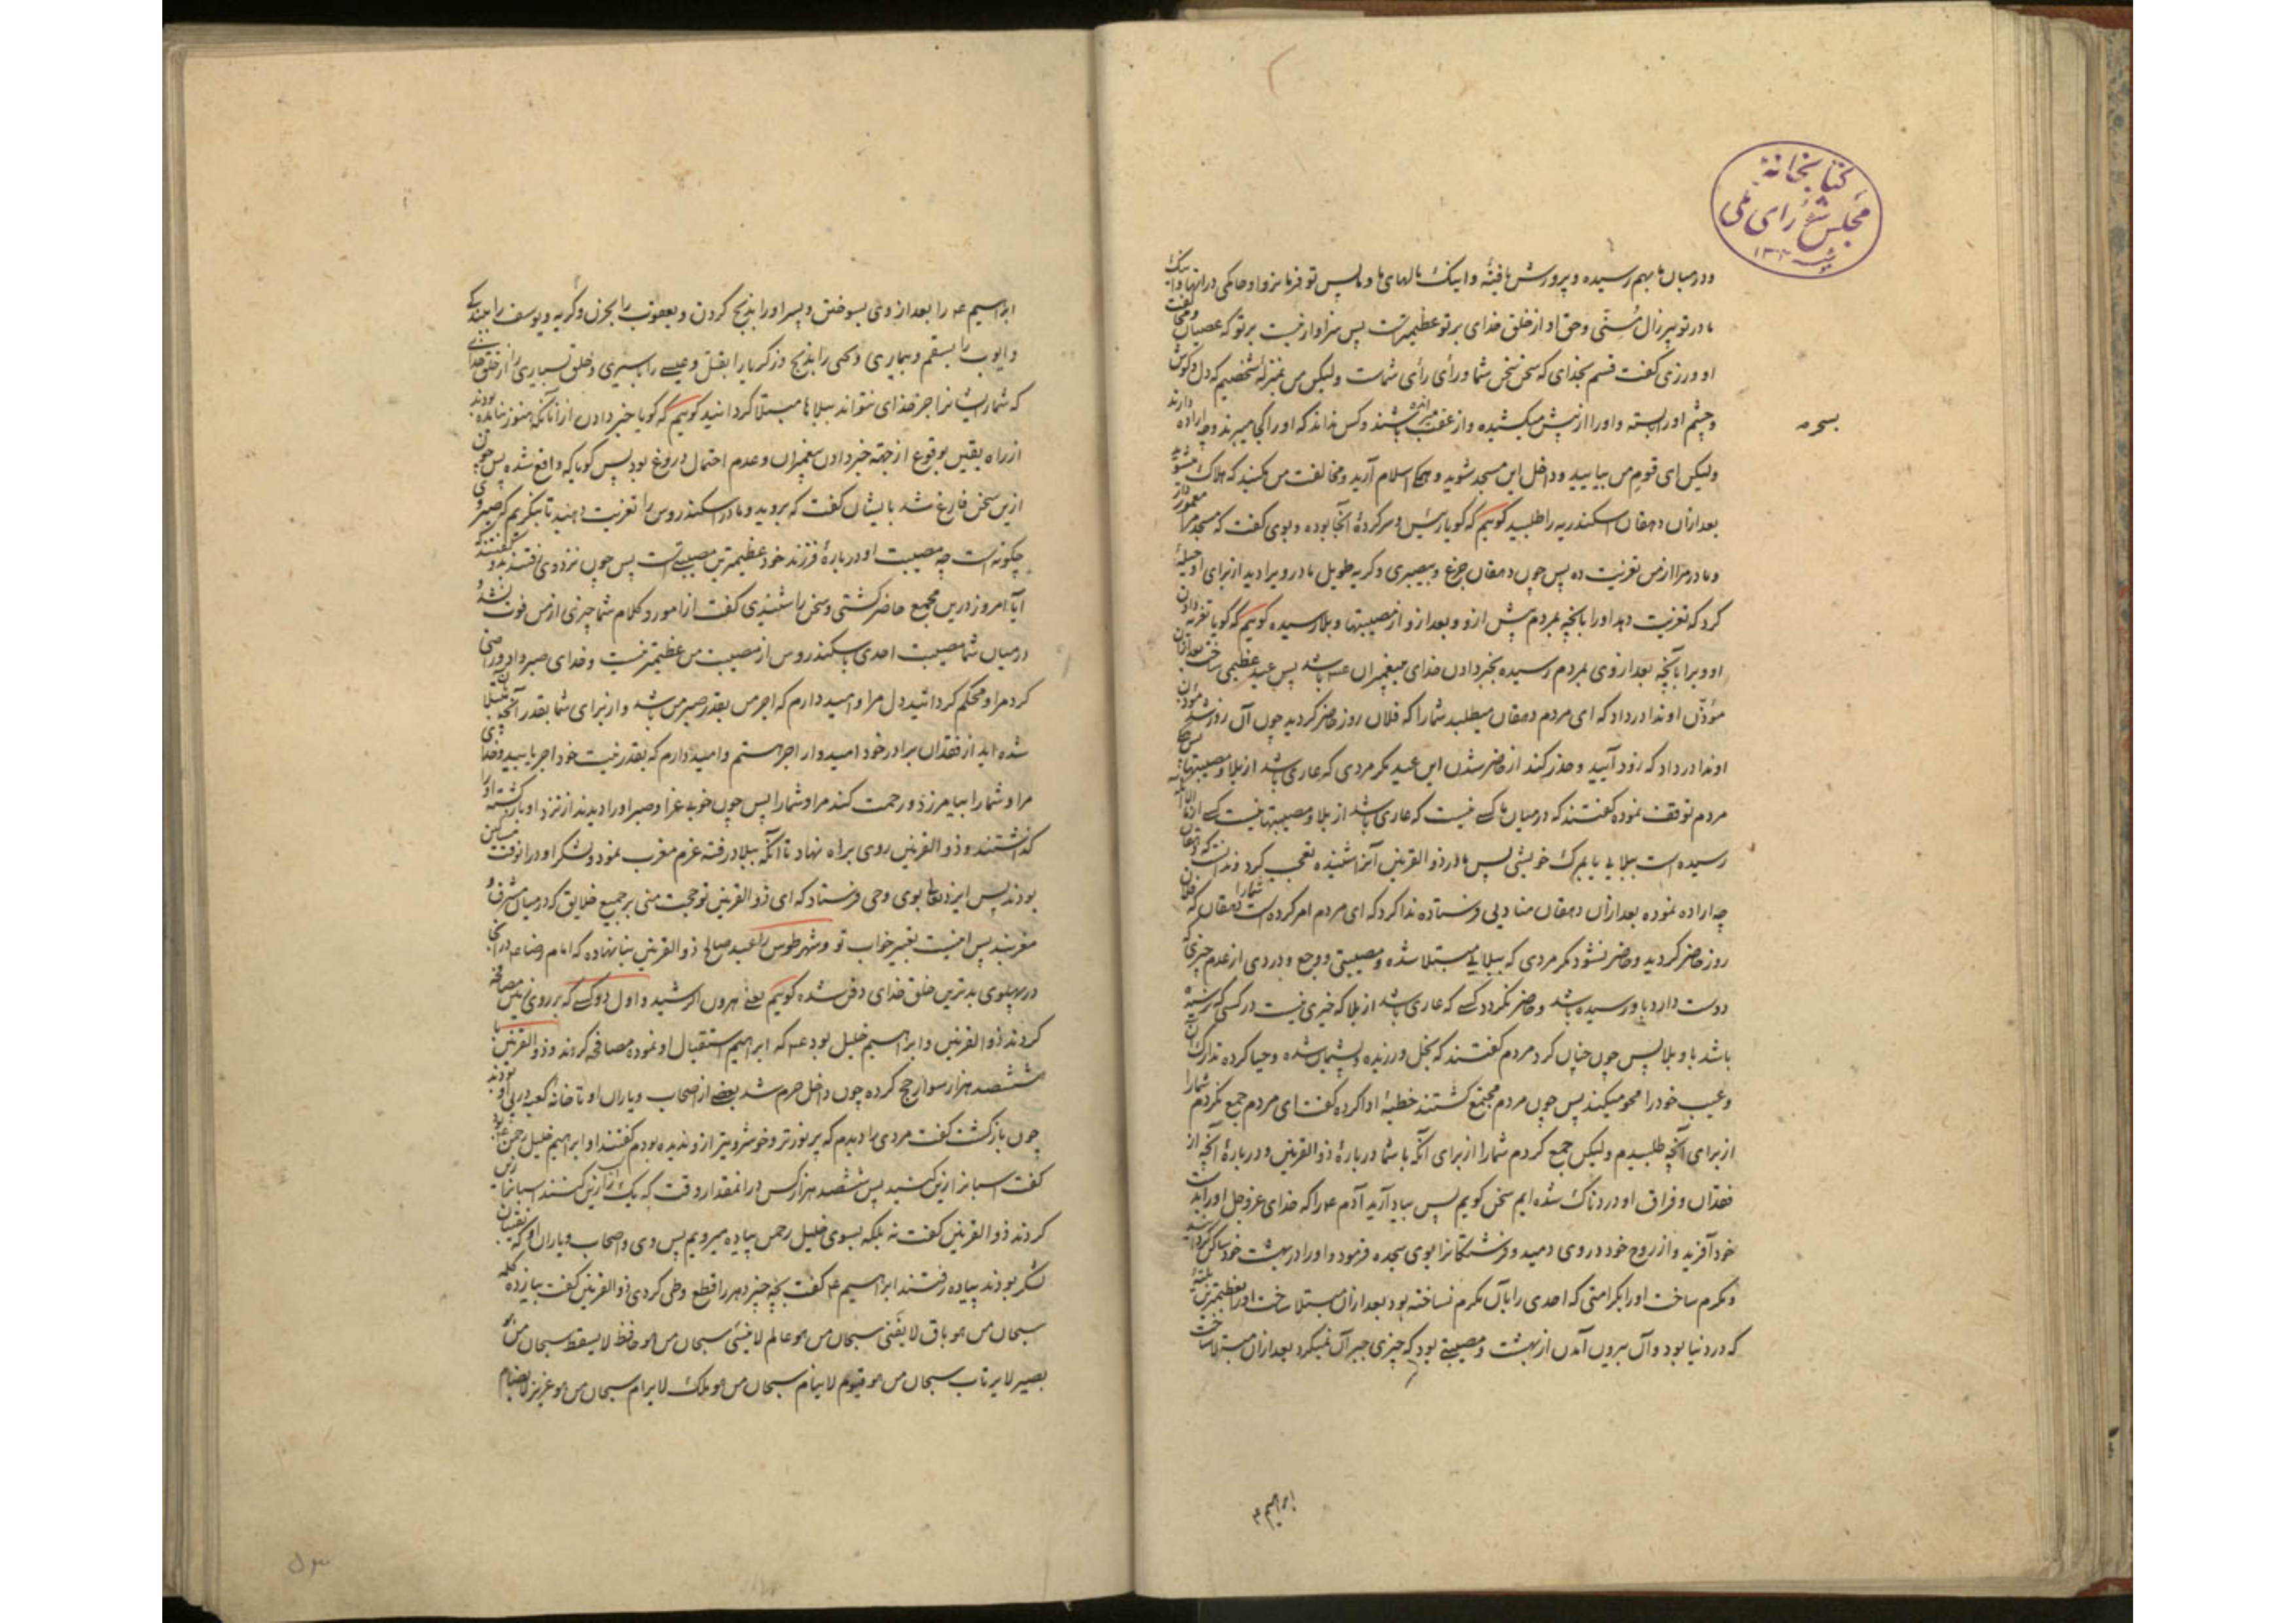 کتابخانهٔ
مجلس شورای ملی
۱۳۰۲
ودرمیان ما بهم رسیده و پرورش یافته و اینک مالهای ما و پس تو فرمانروا و حاکمی درانها و اینک
مادر تو پیرزال مسنّی و حق او از خلق خدای بر تو عظیمترست پس سزاوار نیست بر تو که عصیان و مخالفت
او ورزی گفت قسم بخدای که سخن سخن شما و رأی رأی شماست ولیکن من بمنزلهٔ شخصیم که دل و گوش
و چشم او را بسته و او را از پیش میکشیده و از عقب میرانده باشند و کس نداند که او را کجا میبرند و چه اراده دارند
ولیکن ای قوم من بیایید و داخل این مسجد شوید و همگی اسلام آرید و مخالفت من مکنید که هلاک میشوید
بعد ازان دهقان اسکندریه را طلبید گوییم که گویا رئیس و سرکردهٔ آنجا بوده و بوی گفت که مسجد مرا معمور دار
و مادر مرا از من تعزیت ده پس چون دهقان جزع و بیصبری و گریه طویل مادر ویرا دید از برای او حیلهٔ
کرد که تعزیت دهد او را بانچه بمردم پیش ازو و بعد ازو از مصیبتها و بلا رسیده گوییم که گویا تعزیه دادن
او ویرا بآنچه بعد از وی بمردم رسیده بخبر دادن خدای پیغمبران عمه باشد پس عید عظیمی ساخت بعد ازان
مؤذّن او ندا در داد که ای مردم دهقان میطلبد شما را که فلان روز حاضر گردید چون آن روز شد مؤذن
او ندا در داد که زود آیید و حذر کند از حاضر شدن این عید مگر مردی که عاری باشد از بلا و مصیبتها پس همگی
مردم توقف نموده گفتند که درمیان ما کسی نیست که عاری باشد از بلا و مصیبتها نیست کسی از ما الا آنکه
رسیده است ببلایی یا بمرگ خویشی پس مادر ذوالقرنین آنرا شنیده تعجب کرد و ندانست که دهقان
چه اراده نموده بعد ازان دهقان منادیی فرستاده ندا کرد که ای مردم امر کرده است شما را دهقان که فلان
روز حاضر گردید و حاضر نشود مگر مردی که ببلایی مبتلا شده و مصیبتی و وجع و دردی از عدم چیزی که
دوست دارد باو رسیده باشد و حاضر نگردد کسی که عاری باشد از بلا که خیری نیست در کسی که نرسیده
باشد باو بلا پس چون چنان کرد مردم گفتند که بخل ورزیده و پشیمان شده و حیا کرده تدارک آن
و عیب خود را محو میکند پس چون مردم مجتمع گشتند خطبهٔ ادا کرده گفت ای مردم جمع نکردم شما را
از برای آنچه طلبیدم ولیکن جمع کردم شما را از برای آنکه با شما دربارهٔ ذوالقرنین و دربارهٔ آنچه از
فقدان و فراق او دردناک شده ایم سخن گویم پس بیاد آرید آدم عه را که خدای عزوجل او را بدست
خود آفرید و از روح خود در وی دمید و فرشتگانرا بوی سجده فرمود و او را در بهشت خود ساکن گردانید
و مکرم ساخت او را بکرامتی که احدی را بآن مکرم نساخته بود بعد ازان مبتلا ساخت او را بعظیمترین بلیهٔ
که در دنیا بود و آن بیرون آمدن از بهشت و مصیبتی بود که چیزی جبر آن نمیکرد بعد ازان مبتلا ساخت
ابراهیم ع
ابراهیم عه را بعد از وی بسوختن و پسر او را بذبح کردن و یعقوب را بحزن و گریه و یوسف را ببندگی
و ایوب را بسقم و بیماری و یحیی را بذبح و زکریا را بقتل و عیسی را باسیری و خلق بسیاری را از خلق خدای
که شمار ایشانرا جز خدای نتواند ببلاها مبتلا گردانید گوییم که گویا خبر دادن از آنانکه هنوز نیامده بودند
از راه یقین بوقوع از جهة خبر دادن پیغمبران و عدم احتمال دروغ بود پس گویا که واقع شده پس چون
ازین سخن فارغ شد بایشان گفت که بروید و مادر اسکندروس را تعزیت دهید تا بنگریم که صبر وی
چگونه است چه مصیبت او دربارهٔ فرزند خود عظیمترین مصیبتست پس چون نزد وی رفتند بدو گفتند که
آیا امروز درین مجمع حاضر گشتی و سخن را شنیدی گفت از امور و کلام شما چیزی از من فوت نشد و
درمیان شما مصیبت احدی باسکندروس از مصیبت من عظیمتر نیست و خدای صبر داد و راضی
کرد مرا و محکم گردانید دل مرا و امید دارم که اجر من بقدر صبر من باشد و از برای شما بقدر آنچه مبتلا
شده اید از فقدان برادر خود امیدوار اجر هستم و امید دارم که بقدر نیت خود اجر یابید و خدای
مرا و شما را بیامرزد و رحمت کند مرا و شما را پس چون خوبی عزا و صبر او را دیدند از نزد او بازگشته او را
گذاشتند و ذوالقرنین روی براه نهاد تا آنکه ببلاد رفته عزم مغرب نمود و لشکر او در انوقت مساکین
بودند پس ایزد تعالی بوی وحی فرستاد که ای ذوالقرنین تو حجت منی بر جمیع خلایق که درمیان مشرق و
مغربند پس اینست تعبیر خواب تو و شهر طوس را عبد صالح ذوالقرنین بنا نهاده که امام رضا عه در آنجا
در پهلوی بدترین خلق خدای دفن شده گوییم یعنی هرون الرشید و اول دو کسی که بر روی زمین مصافحه
کردند ذوالقرنین و ابراهیم خلیل بود عمه که ابراهیم استقبال او نموده مصافحه کردند و ذوالقرنین با
ششصد هزار سوار حج کرده چون داخل حرم شد بعضی از اصحاب و یاران او تا خانهٔ کعبه در پی او بودند
چون بازگشت گفت مردی را دیدم که پر نورتر و خوشروتر ازو ندیده بودم گفتند او ابراهیم خلیل رحمن عه بود
گفت اسبانرا زین کشید پس ششصد هزار کس در انمقدار وقت که یک زین کنند اسبانرا زین
کردند ذوالقرنین گفت نه بلکه بسوی خلیل رحمن پیاده میرویم پس وی و اصحاب و یاران او که نقیبان
لشکر بودند پیاده رفتند ابراهیم ع گفت بچه چیز دهر را قطع و طی کردی ذوالقرنین گفت بیازده کلمه
سبحان من هو باق لا یفنی سبحان من هو عالم لا ینسی سبحان من هو حافظ لا یسقط سبحان من هو
بصیر لا یرتاب سبحان من هو قیوم لا ینام سبحان من هو ملک لا یرام سبحان من هو عزیز لا یضام